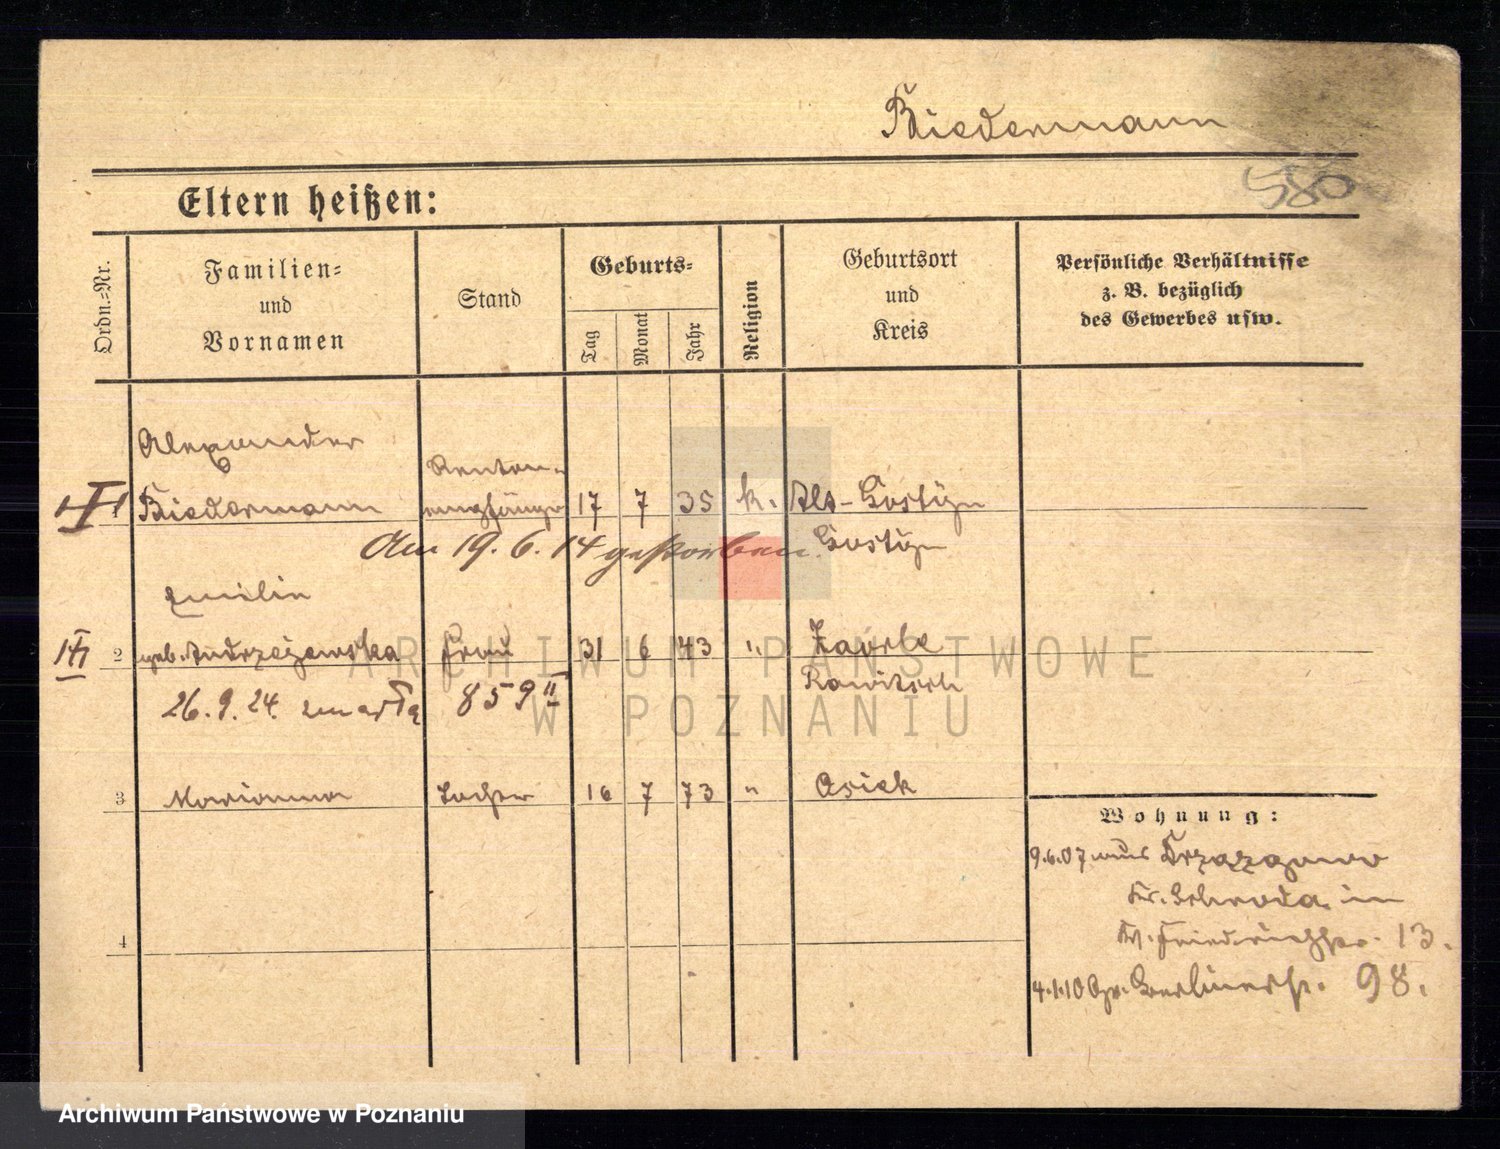 Biedermann
580
Eltern heißen:
Ordn.-Nr.
Familien-
und
Vornamen
Stand
Geburts-
Tag
Monat
Jahr
Religion
Geburtsort
und
Kreis
Persönliche Verhältnisse
z. B. bezüglich
des Gewerbes usw.
Alexander
Renten-
I 1 Biedermann empfänger 17 7 35 k. Alt-Gostyn
Am 19. 6. 14 gestorben. Gostyn
Emilie
2 geb. Andrzejewska Frau 31 6 43 " 
Rawitsch
26. 9. 24. zmarła 859 II
3 Marianna Tochter 16 7 73 " Osiek
4
Wohnung:
9.6.07 aus
Kr. Schroda in
Friedrichstr. 13.
4.1.10 Berlinerstr. 98.
ARCHIWUM PAŃSTWOWE
W POZNANIU
Archiwum Państwowe w Poznaniu